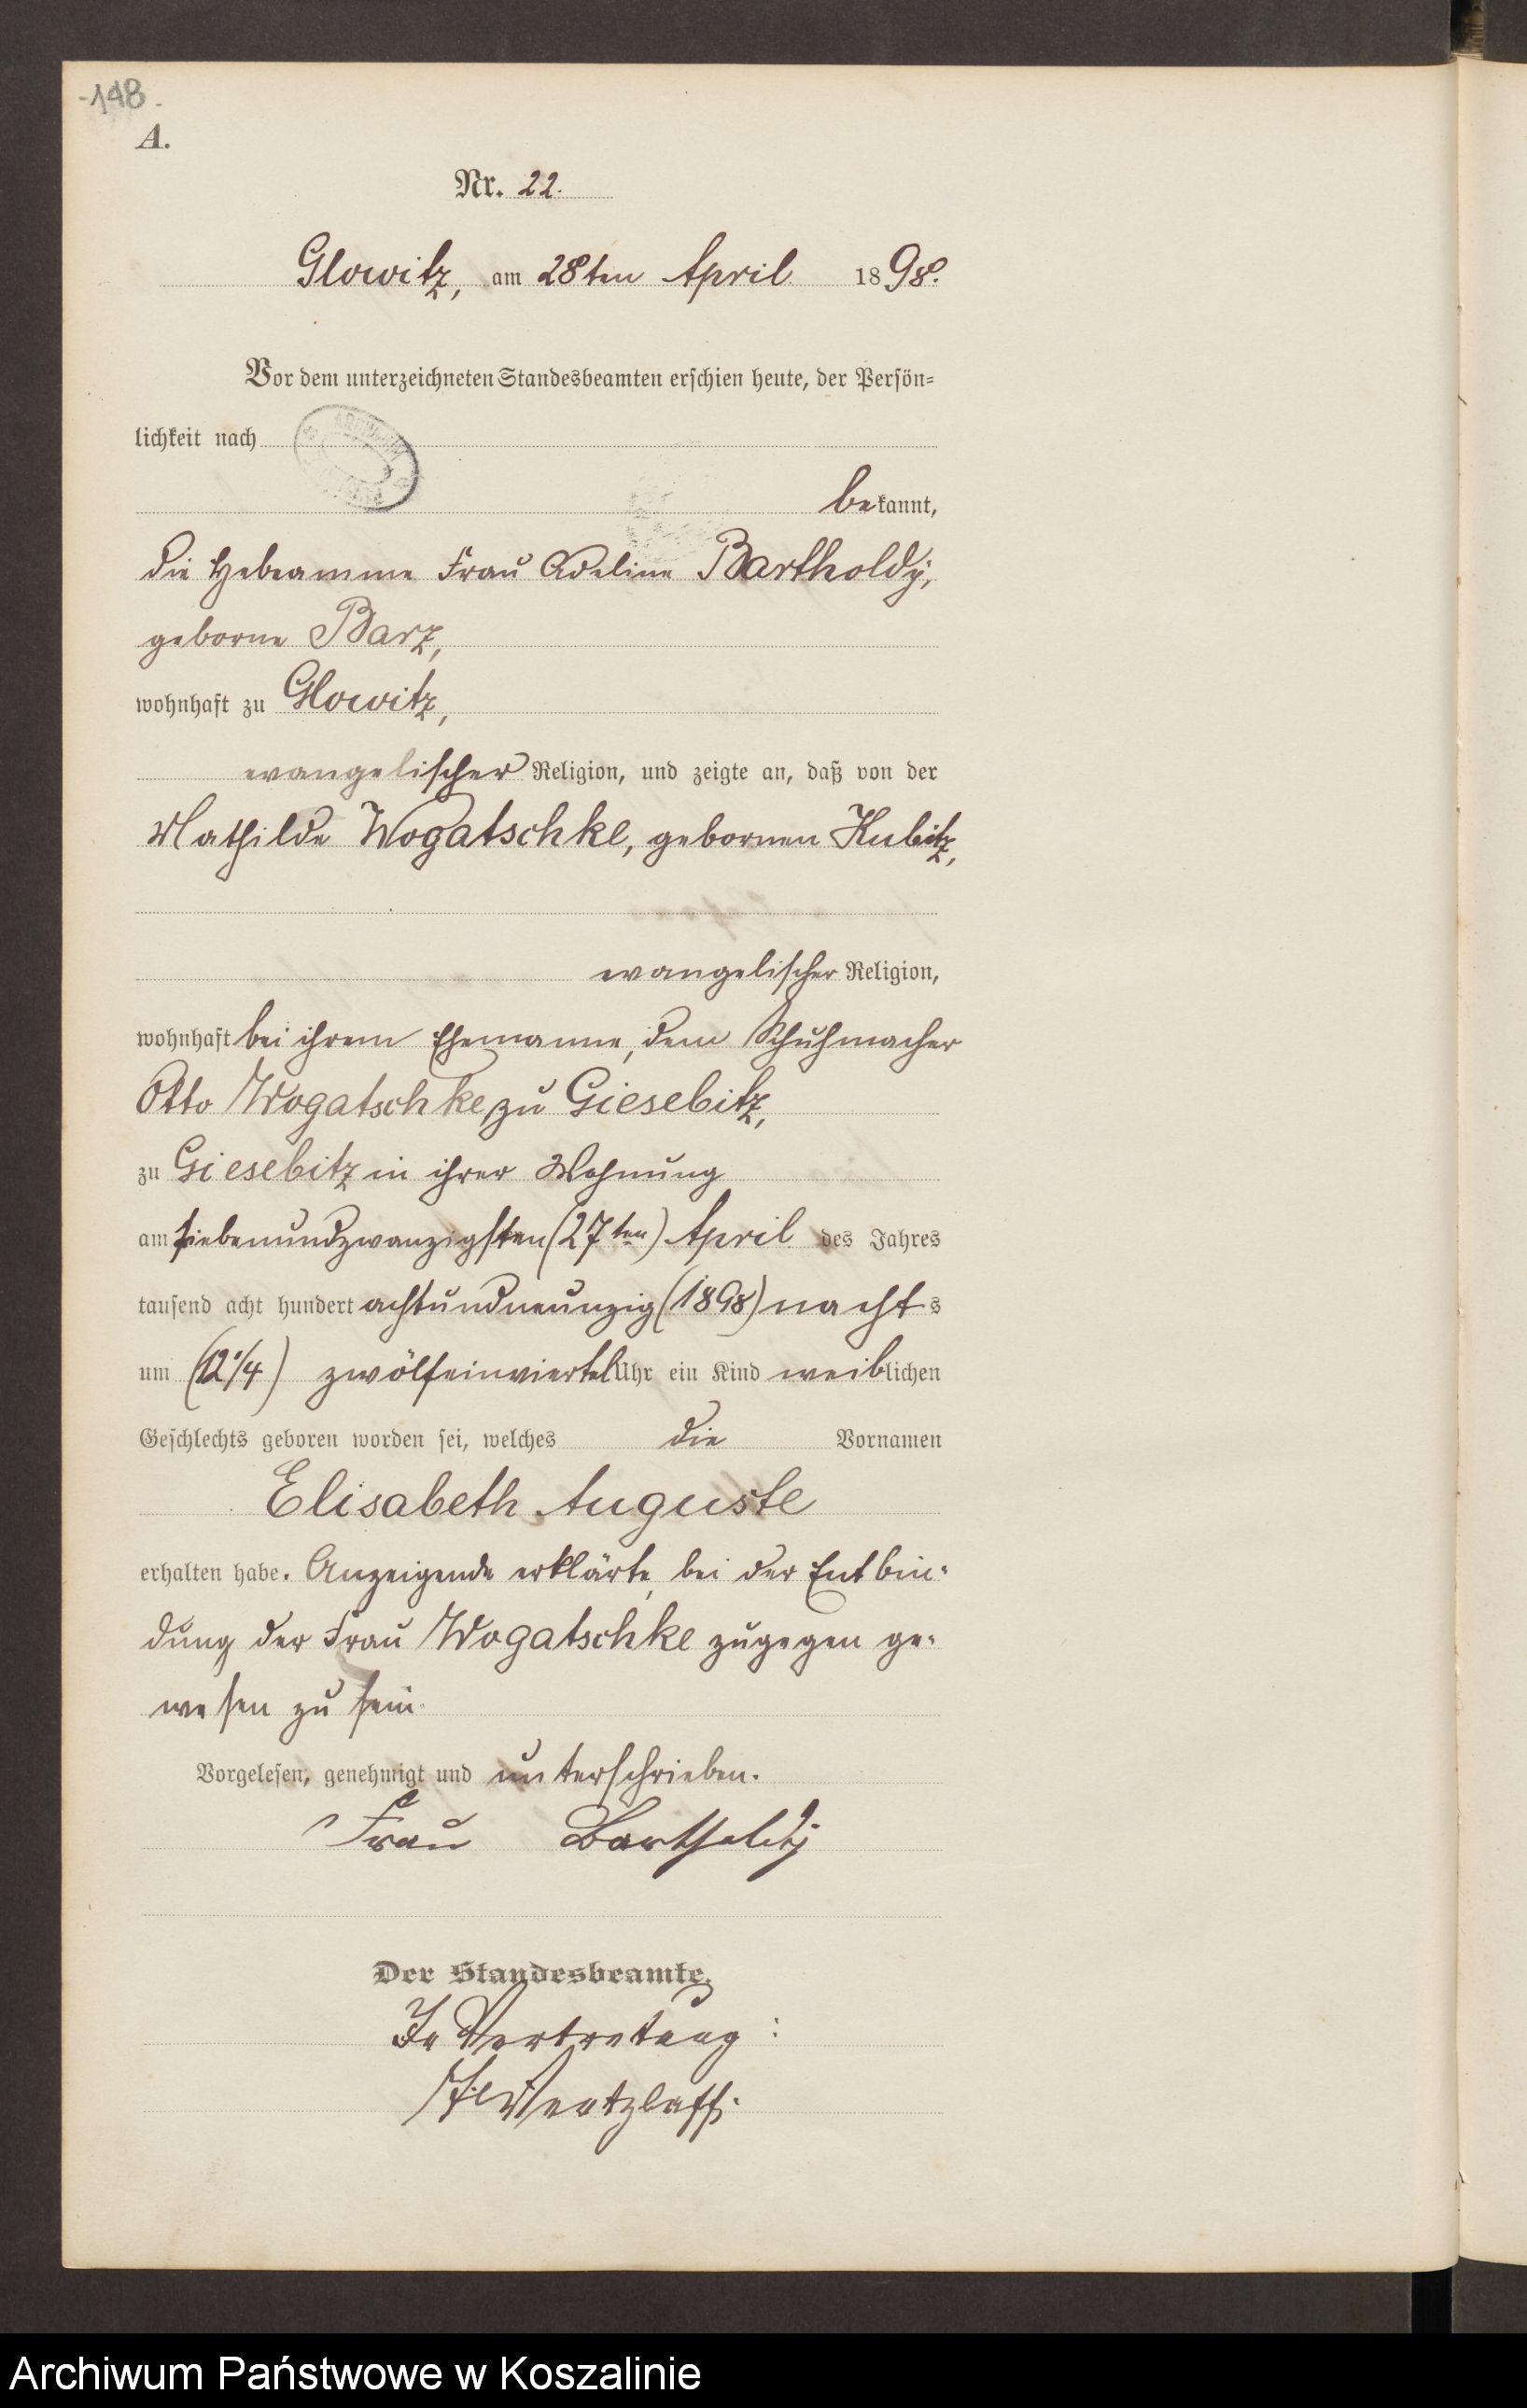 -148-
A.
Nr. 22.
Glowitz, am 28ten April 1898.
Vor dem unterzeichneten Standesbeamten erschien heute, der Persön-
lichkeit nach
bekannt,
die Hebeamme Frau Adeline Bartholdy,
geborne Barz,
wohnhaft zu Glowitz,
evangelischer Religion, und zeigte an, daß von der
Mathilde Wogatschke, gebornen Kubitz,
evangelischer Religion,
wohnhaft bei ihrem Ehemanne, dem Schuhmacher
Otto Wogatschke, zu Giesebitz,
zu Giesebitz in ihrer Wohnung
am siebenundzwanzigsten (27ten) April des Jahres
tausend acht hundert achtundneunzig (1898) nachts
um (12 1/4) zwölfeinviertel Uhr ein Kind weiblichen
Geschlechts geboren worden sei, welches die Vornamen
Elisabeth Auguste
erhalten habe. Anzeigende erklärte, bei der Entbin-
dung der Frau Wogatschke zugegen ge-
wesen zu sein.
Vorgelesen, genehmigt und unterschrieben.
Frau Bartholdy
Der Standesbeamte.
In Vertretung:
Archiwum Państwowe w Koszalinie